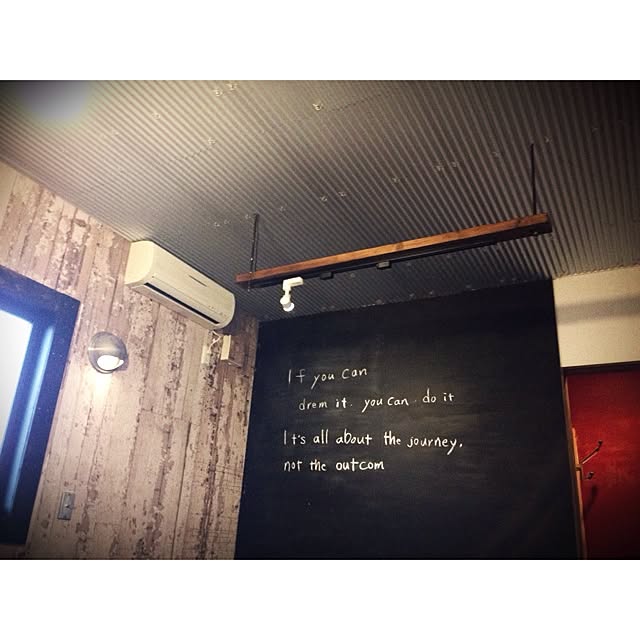 If you can
drem it. you can. do it
It's all about the journey,
not the outcom